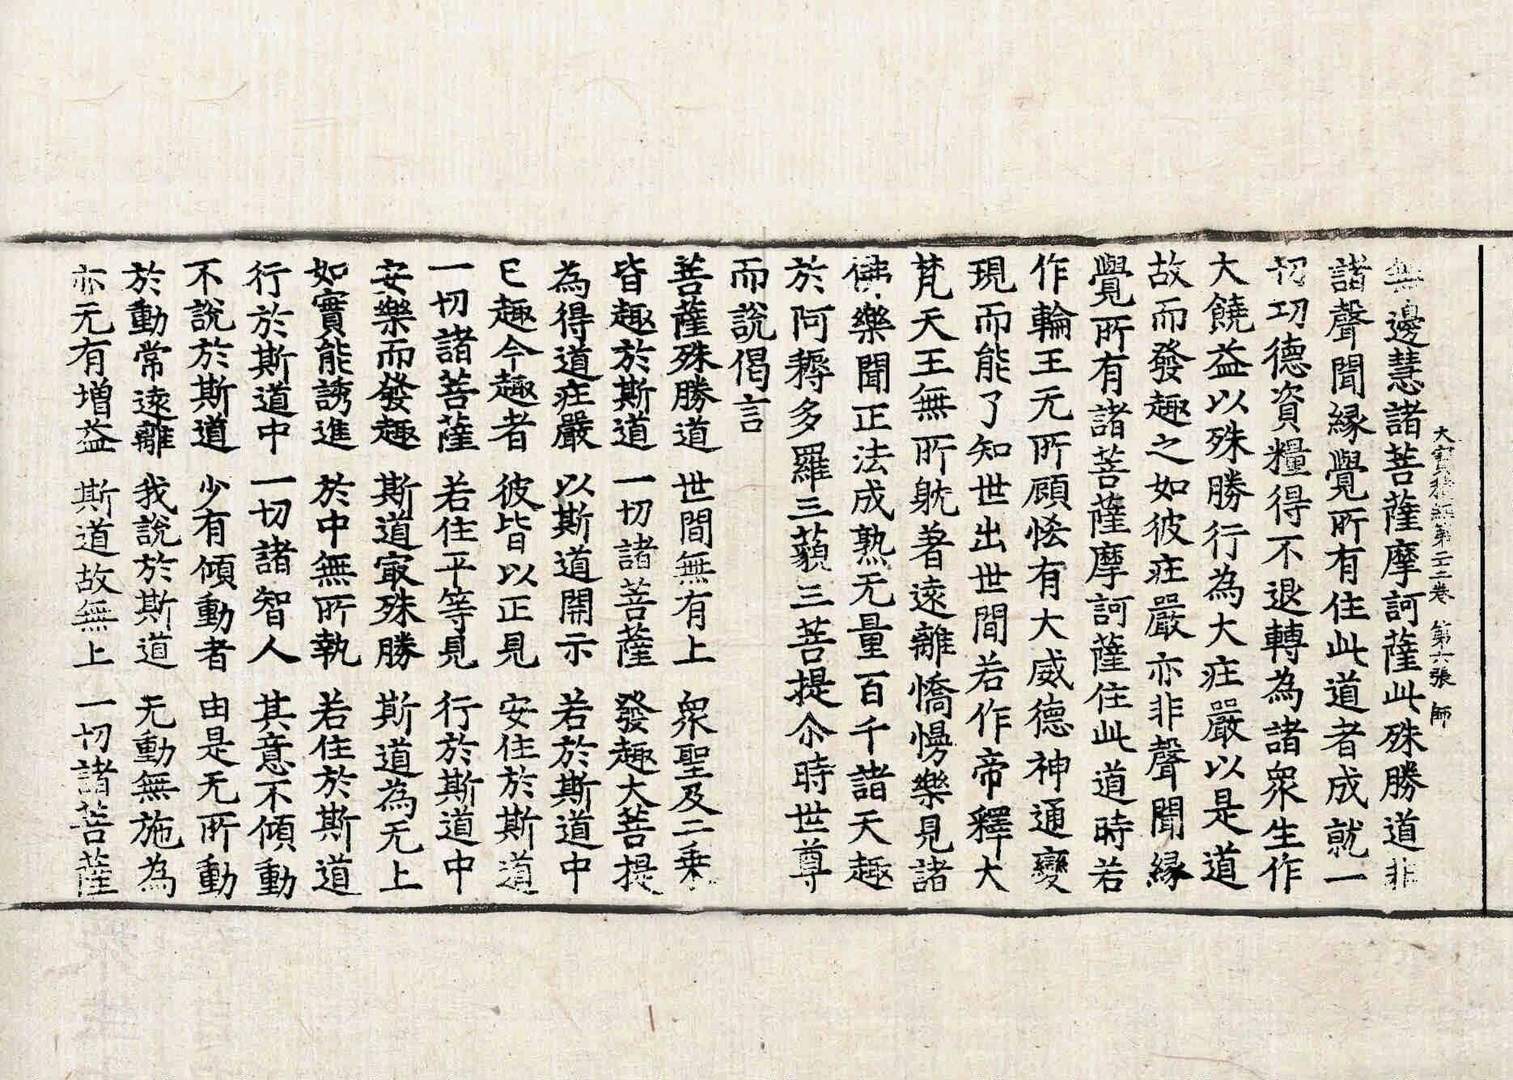 大寶積經第二十二卷　第六張　師
無邊慧諸菩薩摩訶薩此殊勝道非
諸聲聞緣覺所有住此道者成就一
切功德資糧得不退轉為諸衆生作
大饒益以殊勝行為大㽵嚴以是道
故而發趣之如彼㽵嚴亦非聲聞緣
覺所有諸菩薩摩訶薩住此道時若
作輪王无所顧悋有大威德神通變
現而能了知世出世間若作帝釋大
梵天王無所躭著遠離憍慢樂見諸
佛樂聞正法成熟无量百千諸天趣
於阿耨多羅三藐三菩提尒時世尊
而說偈言
菩薩殊勝道　世間無有上　衆聖及二乗
皆趣於斯道　一切諸菩薩　發趣大菩提
為得道㽵嚴　以斯道開示　若於斯道中
已趣今趣者　彼皆以正見　安住於斯道
一切諸菩薩　若住平等見　行於斯道中
安樂而發趣　斯道㝡殊勝　斯道為无上
如實能誘進　於中無所執　若住於斯道
行於斯道中　一切諸智人　其意不傾動
不說於斯道　少有傾動者　由是无所動
於動常遠離　我說於斯道　无動無施為
亦元有增益　斯道故無上　一切諸菩薩